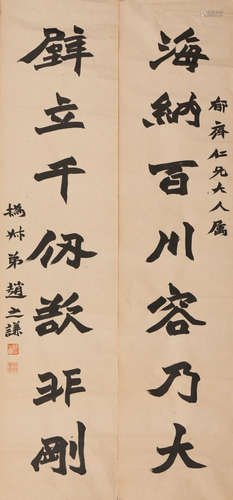 郁齊仁兄大人属
海納百川容乃大
壁立千仞欲非剛
撝叔弟趙之謙